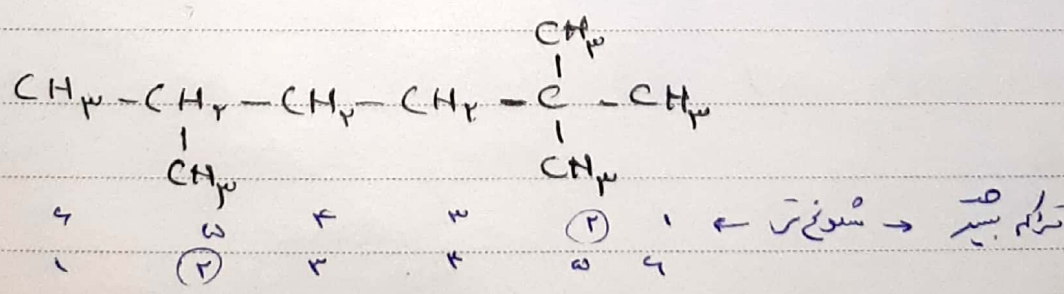 CH۳
CH۳ - CH۲ - CH۲ - CH۲ - C - CH۳
CH۳ CH۳
۶ ۵ ۴ ۳ ۲ ۱ ← شلوغ‌تر ← تراکم بیشتر
۱ ۲ ۳ ۴ ۵ ۶